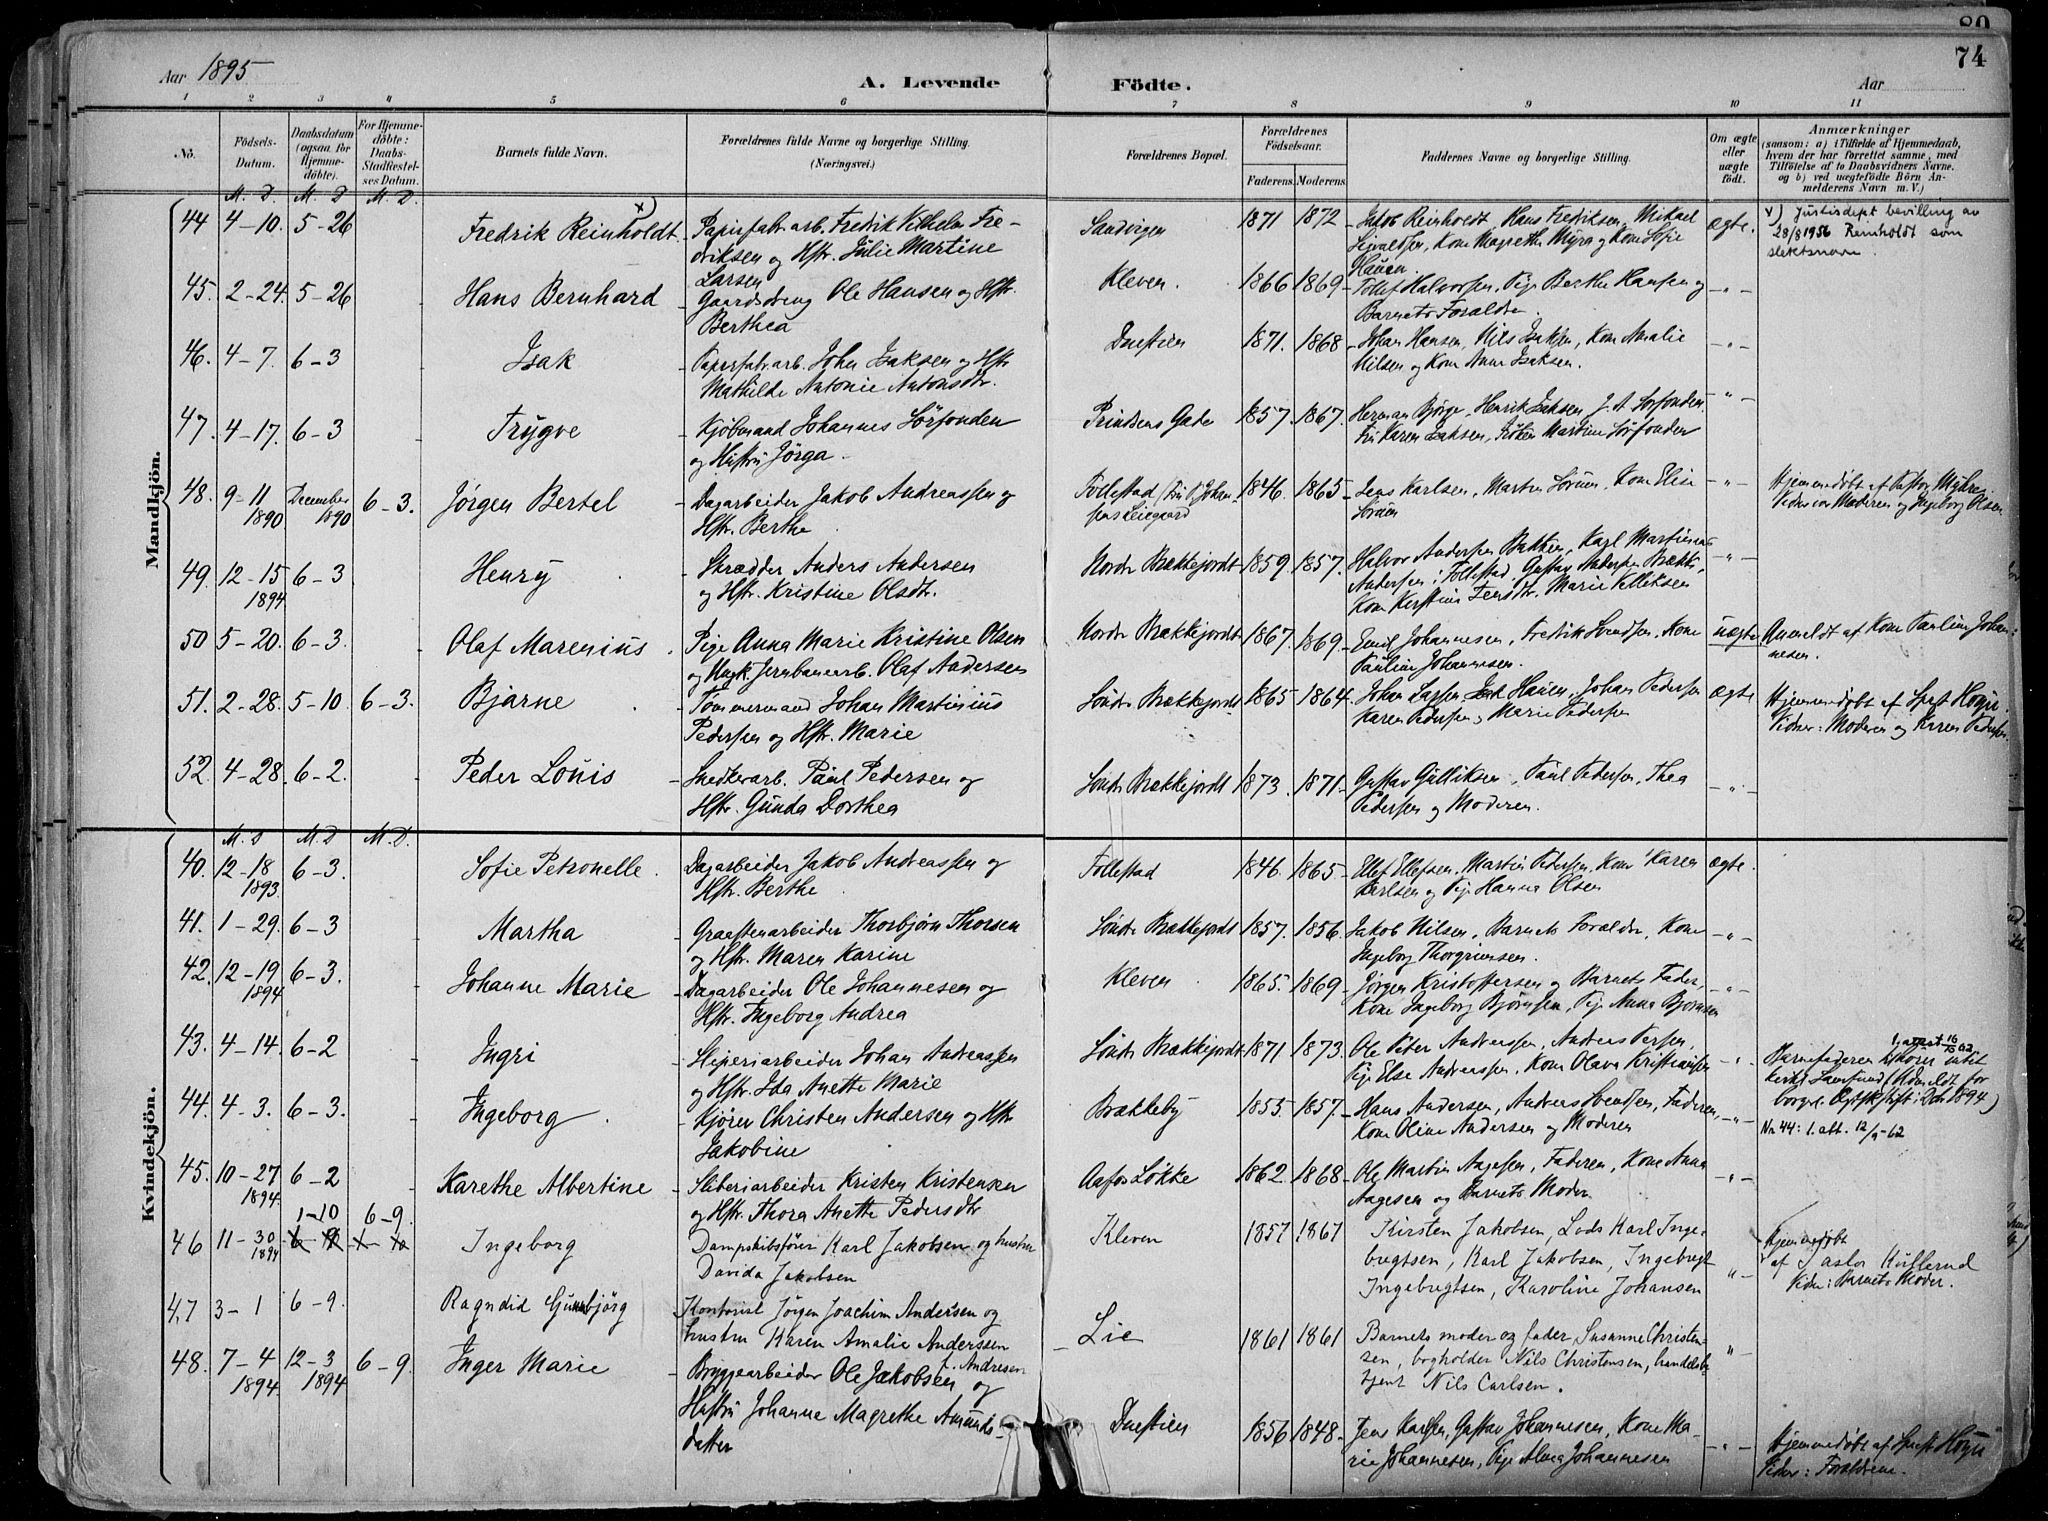 80
74
Aar 1895
A. Levende
Födte.
Aar
1 2 3 4 5 6 7 8 9 10 11
No.
Födsels-
Datum.
Daabsdatum
(ogsaa for
Hjemme-
döbte).
For Hjemme-
döbte:
Daabs-
Stadfæstel-
ses Datum.
Barnets fulde Navn.
Forældrenes fulde Navne og borgerlige Stilling.
(Næringsvei.)
Forældrenes Bopæl.
Forældrenes
Födselsaar.
Faderens. Moderens.
Faddernes Navne og borgerlige Stilling.
Om ægte
eller
uægte
födt.
Anmærkninger
(saasom: a) i Tilfælde af Hjemmedaab,
hvem der har forrettet samme, med
Tilföielse af to Daabsvidners Navne.
og b) ved uægtefödte Börn An-
melderens Navn m. V.)
Mandkjön.
M. D. M. D M. D.
44 4-10. 5-26 Fredrik Reinholdt x)
Papirfabr.arb. Fredrik Vilhelm Fre-
driksen og Hstr. Julie Martine
Larsen
Sandvigen 1871 1872
Jakob Reinholdt, Hans Fredriksen, Mikael
Sigvaldsen, Kone Magrethe Myra og Kone Sofie
Hauen.
Ægte.
x) Justisdept bevilling av
28/8 1956 Reinholdt som
slektsnavn.
45. 2-24. 5-26 Hans Bernhard
Gaardsdreng Ole Hansen og Hstr.
Berthea
Kleven. 1866 1869
Tollef Halvorsen, Pige Berthe Hansen og
Barnets Forældre.
-"-
46. 4-7. 6-3 Isak
Papirfabr.arb. John Isaksen og Hstr
Mathilde Antonie Antonsdtr.
Duestien 1871. 1868
Johan Hansen, Nils Isaksen, Kone Amalie
Nilsen og Kone Anne Isaksen.
-"-
47. 4-17. 6-3 Trygve
Kjøbmand Johannes Sörfonden
og Hustru Jörga.
Prindsens Gade 1857. 1867.
Herman Bjørge, Henrik Isaksen, J. A. Sörfonden
Fru Karen Isaksen, Frøken Martine Sörfonden
-"-
48. 9-11 1890 December 1890 6-3. Jørgen Bertel
Dagarbeider Jakob Andreassen og
Hstr. Berthe
Follestad 1846. 1865
Jens Karlsen, Martin Sörum, Kone Elise
Sörum
-"-
Hjemmedøbt af Pastor Myhre
Vidner: Moderen og Ingeborg Olsen
49. 12-15 1894 6-3 Henry
Skrædder Anders Andersen
og Hstr. Kristine Olsdtr.
Nordr Brækkejordt 1859 1857.
Halvor Andersen Bakken, Karl Martinius
Andersen i Follestad, Gustav Andersen Brækk.,
-"-
50 5-20. 6-3. Olaf Marenius
Pige Anna Marie Kristine Olsen
og Ungk. Jernbanearb. Olaf Andersen
Nordr Brækkejordt 1867. 1869.
Emil Johannesen, Fredrik Svendsen, Kone
Pauline Johannesen.
uægte
Anmeldt af Kone Pauline Johan-
nesen.
51. 2-28. 5-10 6-3. Bjarne
Tømmermand Johan Martinius
Pedersen og Hstr. Marie
Sönd. Brækkejordt 1865 1864
Johan Larsen Hauen, Johan Pedersen
Karen Pedersen, Marie Pedersen
ægte
Hjemmedøbt af Spst Høyn.
Vidner: Moderen og Karen Pedersen.
52 4-28. 6-2. Peder Louis
Snedkerarb. Paul Pedersen og
Hstr. Gunda Dorthea
Sönd. Brækkejordt 1873. 1871
Gustav Gulliksen, Paul Pedersen, Thea
Pedersen og Moderen.
-"-
Kvindekjön.
M. D M. D M. D.
40. 12-18 1893 6-3. Sofie Petronelle.
Dagarbeider Jakob Andreassen og
Hstr. Berthe
Follestad 1846. 1865
Ellef Ellefsen, Martin Pedersen, Kone Karen
Karlsen og Pige Hanna Olsen
ægte.
41. 1-29. 6-3 Martha
Graastenarbeider Thorbjørn Thorsen
og Hstr. Maren Karine
Sönd. Brækkejordt 1857. 1856.
Jakob Nilsen, Barnets Forældre, Kone
Ingeborg Thorgrimsen.
-"-
42. 12-19 1894 6-3. Johanne Marie
Dagarbeider Ole Johannesen og
Hstr. Ingeborg Andrea
Kleven 1865. 1869
Jörgen Kristoffersen og Barnets Fader,
Kone Ingeborg Bjørnsen, Pige Anna Bjørnsen
-"-
43. 4-14. 6-2 Ingri
Sliperiarbeider Johan Andreassen
og Hstr. Ida Anette Marie
Sönd. Brækkejordt 1871 1873.
Ole Peter Andreassen, Anders Persen,
Pige Else Andreassen, Kone Olava Kristiansen
-"-
44. 4-3. 6-3. Ingeborg.
Kjörer Christen Andersen og Hstr
Jakobine
Brækkeby 1855. 1857.
Hans Andersen, Anders Svendsen, Faderen,
Kone Oline Andersen og Moderen
-"-
Nr 44: 1. att. 12/9-62
45. 10-27 1894 6-2 Karethe Albertine
Sliberiarbeider Kristen Kristensen
og Hstr. Thora Anette Pedersdtr
Aafos Løkke 1862. 1868
Ole Martin Aagesen, Faderen, Kone Anna
Aagesen og Barnets Moder.
-"-
46 11-30 1894 1-10 6-9. Ingeborg
Dampskibsfører Karl Jakobsen og hustru
Davida Jakobsen
Kleven 1857 1867
Kirsten Jakobsen, Lods Karl Inge-
bregtsen, Karl Jakobsen, Ingebregt
Ingebregtsen, Karoline Johansen
"-
Hjemmedøbt
af Pastor Kullerud
Vidn: Barnets Moder.
47 3-1 6-9. Ragndid Gunnbjörg
Kontorist Jørgen Joachim Andersen og
hustru Karen Amalie Anderssen
f. Andresen
Lie 1861 1861
Barnets moder og fader, Susanne Christen-
sen, bogholder Nils Christensen, handelsb-
tjent Nils Carlsen.
"
48. 7-4 1894 12-3 1894 6-9. Inger Marie
Bryggearbeider Ole Jakobsen og
Hustru Johanne Magrethe Amunds-
datter
Duestien 1856 1848
Jens Karlsen, Gustav Johannesen, Kone Ma-
rie Johannesen, Pige Alma Johannesen
-"-
Hjemmedøbt af Spst Høyn
Vidner: Forældrene.